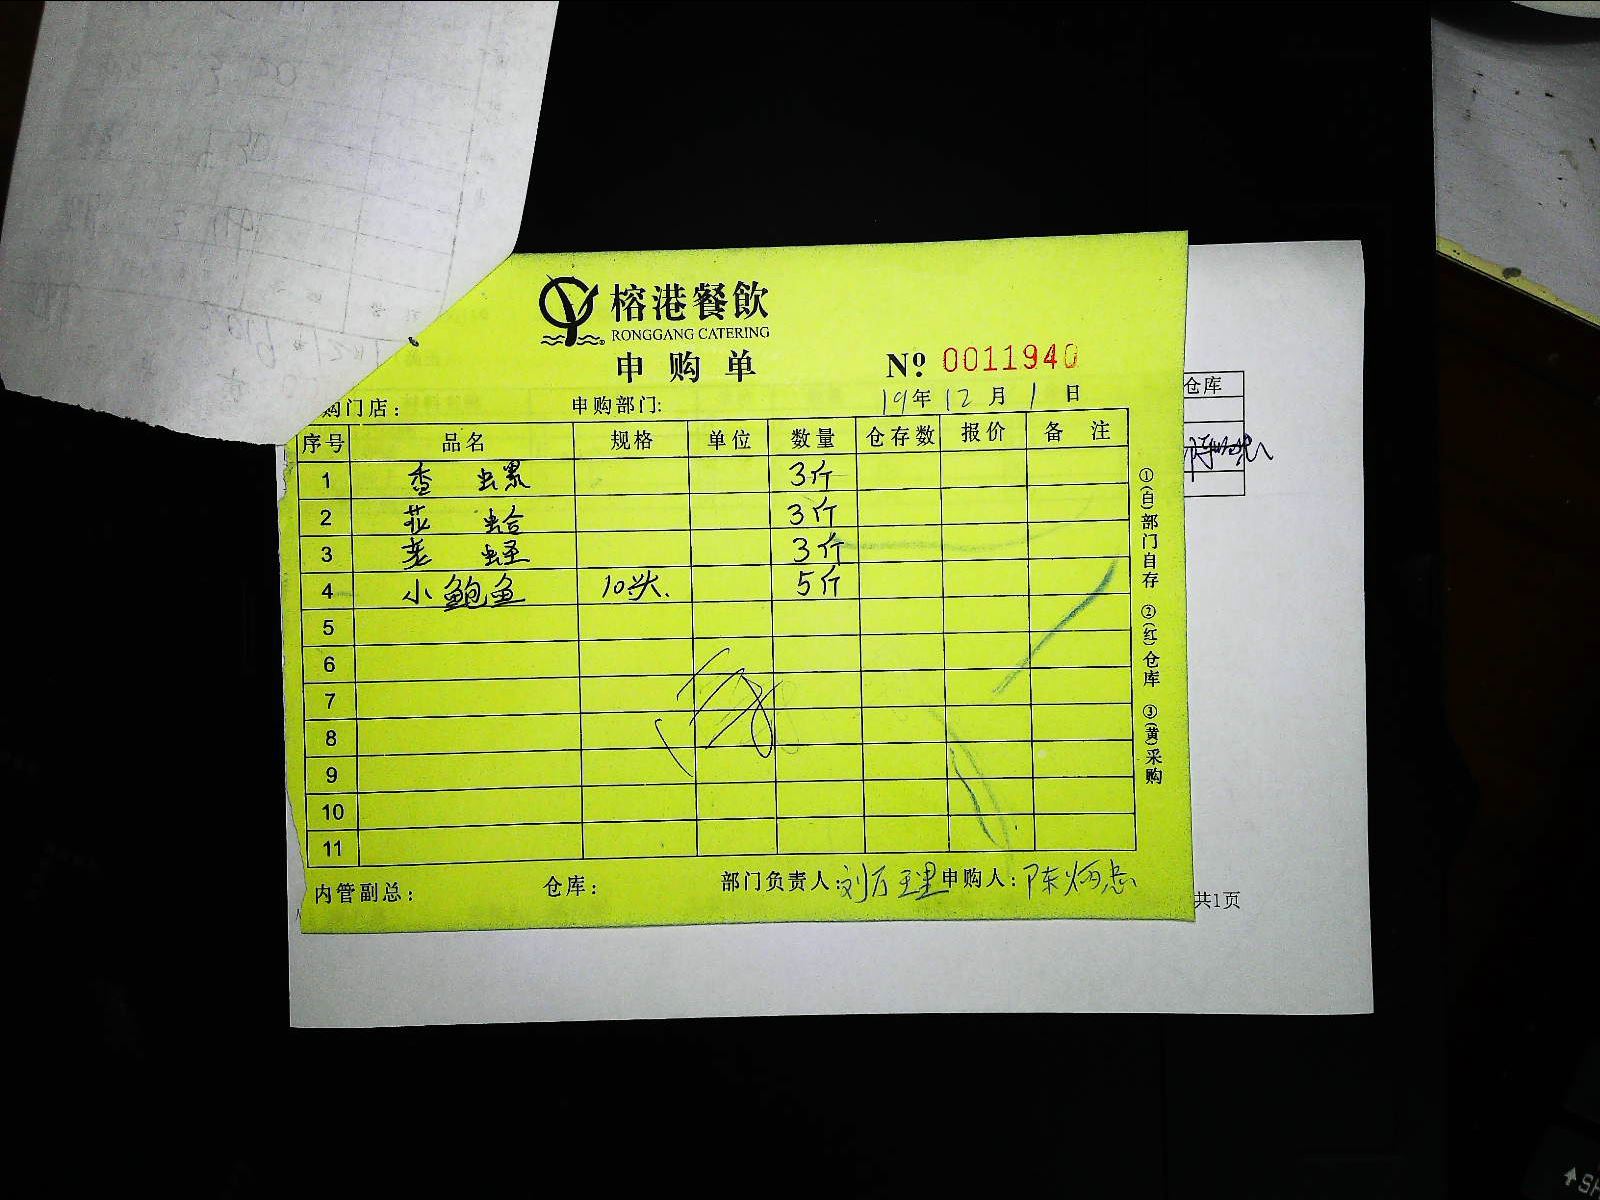 榕港餐飲
RONGGANG CATERING
申购单
No 0011940
购门店: 申购部门: 19年12月1日
序号 品名 规格 单位 数量 仓存数 报价 备注
1 香螺 3斤
2 花蛤 3斤
3 老蛏 3斤
4 小鲍鱼 10头. 5斤
5
6
7
8
9
10
11
内管副总: 仓库: 部门负责人: 申购人: 陈炳忠
①(白)部门自存 ②(红)仓库 ③(黄)采购
仓库
共1页